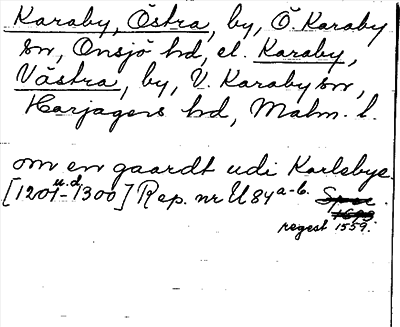 Karaby, Östra, by, Ö. Karaby
sn, Onsjö hd, el. Karaby,
Västra, by, V. Karaby sn,
Harjagers hd, Malm. l.
om en gaardt udi Karlebye.
u.d.
[1201-1300] Rep. nr U 84 a-b.
regest 1559.